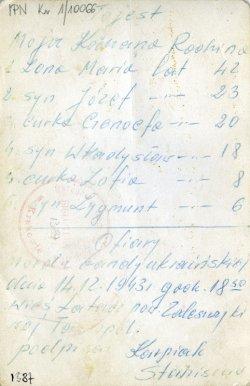 IPN Kr 1/10066
jest
Moja Kochana Rodzina
1. Żona Maria lat 42
2. syn Józef -·- 23
3. curka Genoefa -·- 20
4. syn Władysław -·- 18
5. curka Zofia - 8
6. syn Zygmunt - 6
Ofiary
mordu bandy ukraińskiej
dnia 14.12.1943 r godz. 18 50
wieś pod Zaleszczyki
woj.
podpisan Karpiak
Stanisław
1387